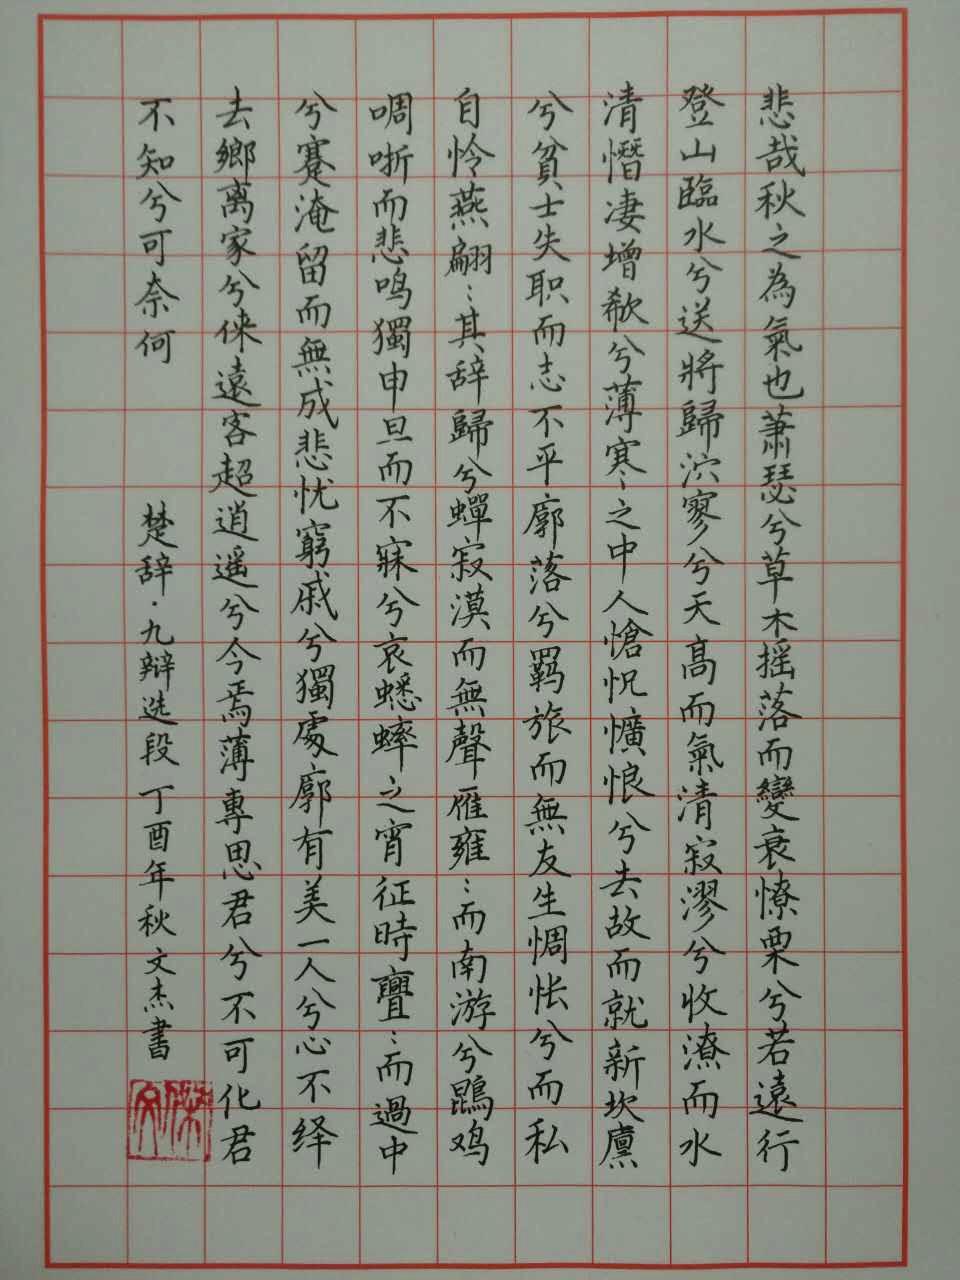 悲哉秋之為氣也蕭瑟兮草木摇落而變衰憭栗兮若遠行
登山臨水兮送將歸泬寥兮天高而氣清寂漻兮收潦而水
清憯凄增欷兮薄寒〻之中人愴怳懭悢兮去故而就新坎廩
兮貧士失职而志不平廓落兮羁旅而無友生惆怅兮而私
自怜燕翩〻其辞歸兮蟬寂漠而無聲雁雍〻而南游兮鵾鸡
啁哳而悲鸣獨申旦而不寐兮哀蟋蟀之宵征時亹〻而過中
兮蹇淹留而無成悲忧窮戚兮獨處廓有美一人兮心不绎
去鄉离家兮俫遠客超逍遥兮今焉薄專思君兮不可化君
不知兮可奈何
楚辞·九辯选段 丁酉年秋 文杰書
文傑